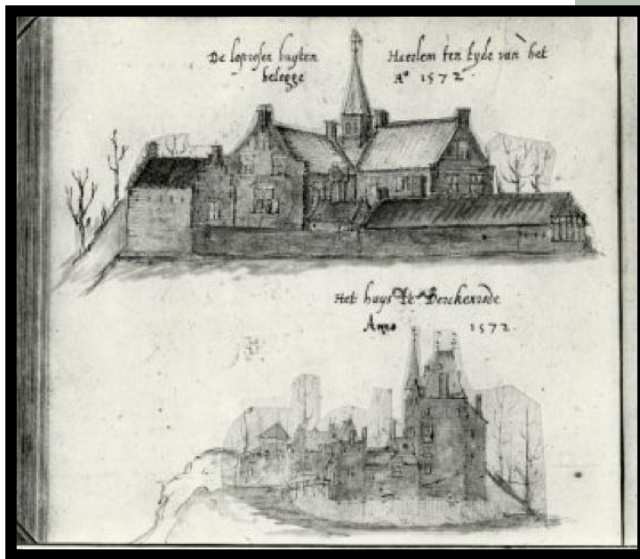 De leprosen buyten Haerlem ten tyde van het
belegge A° 1572
Het huys te Berckenrode
Anno 1572